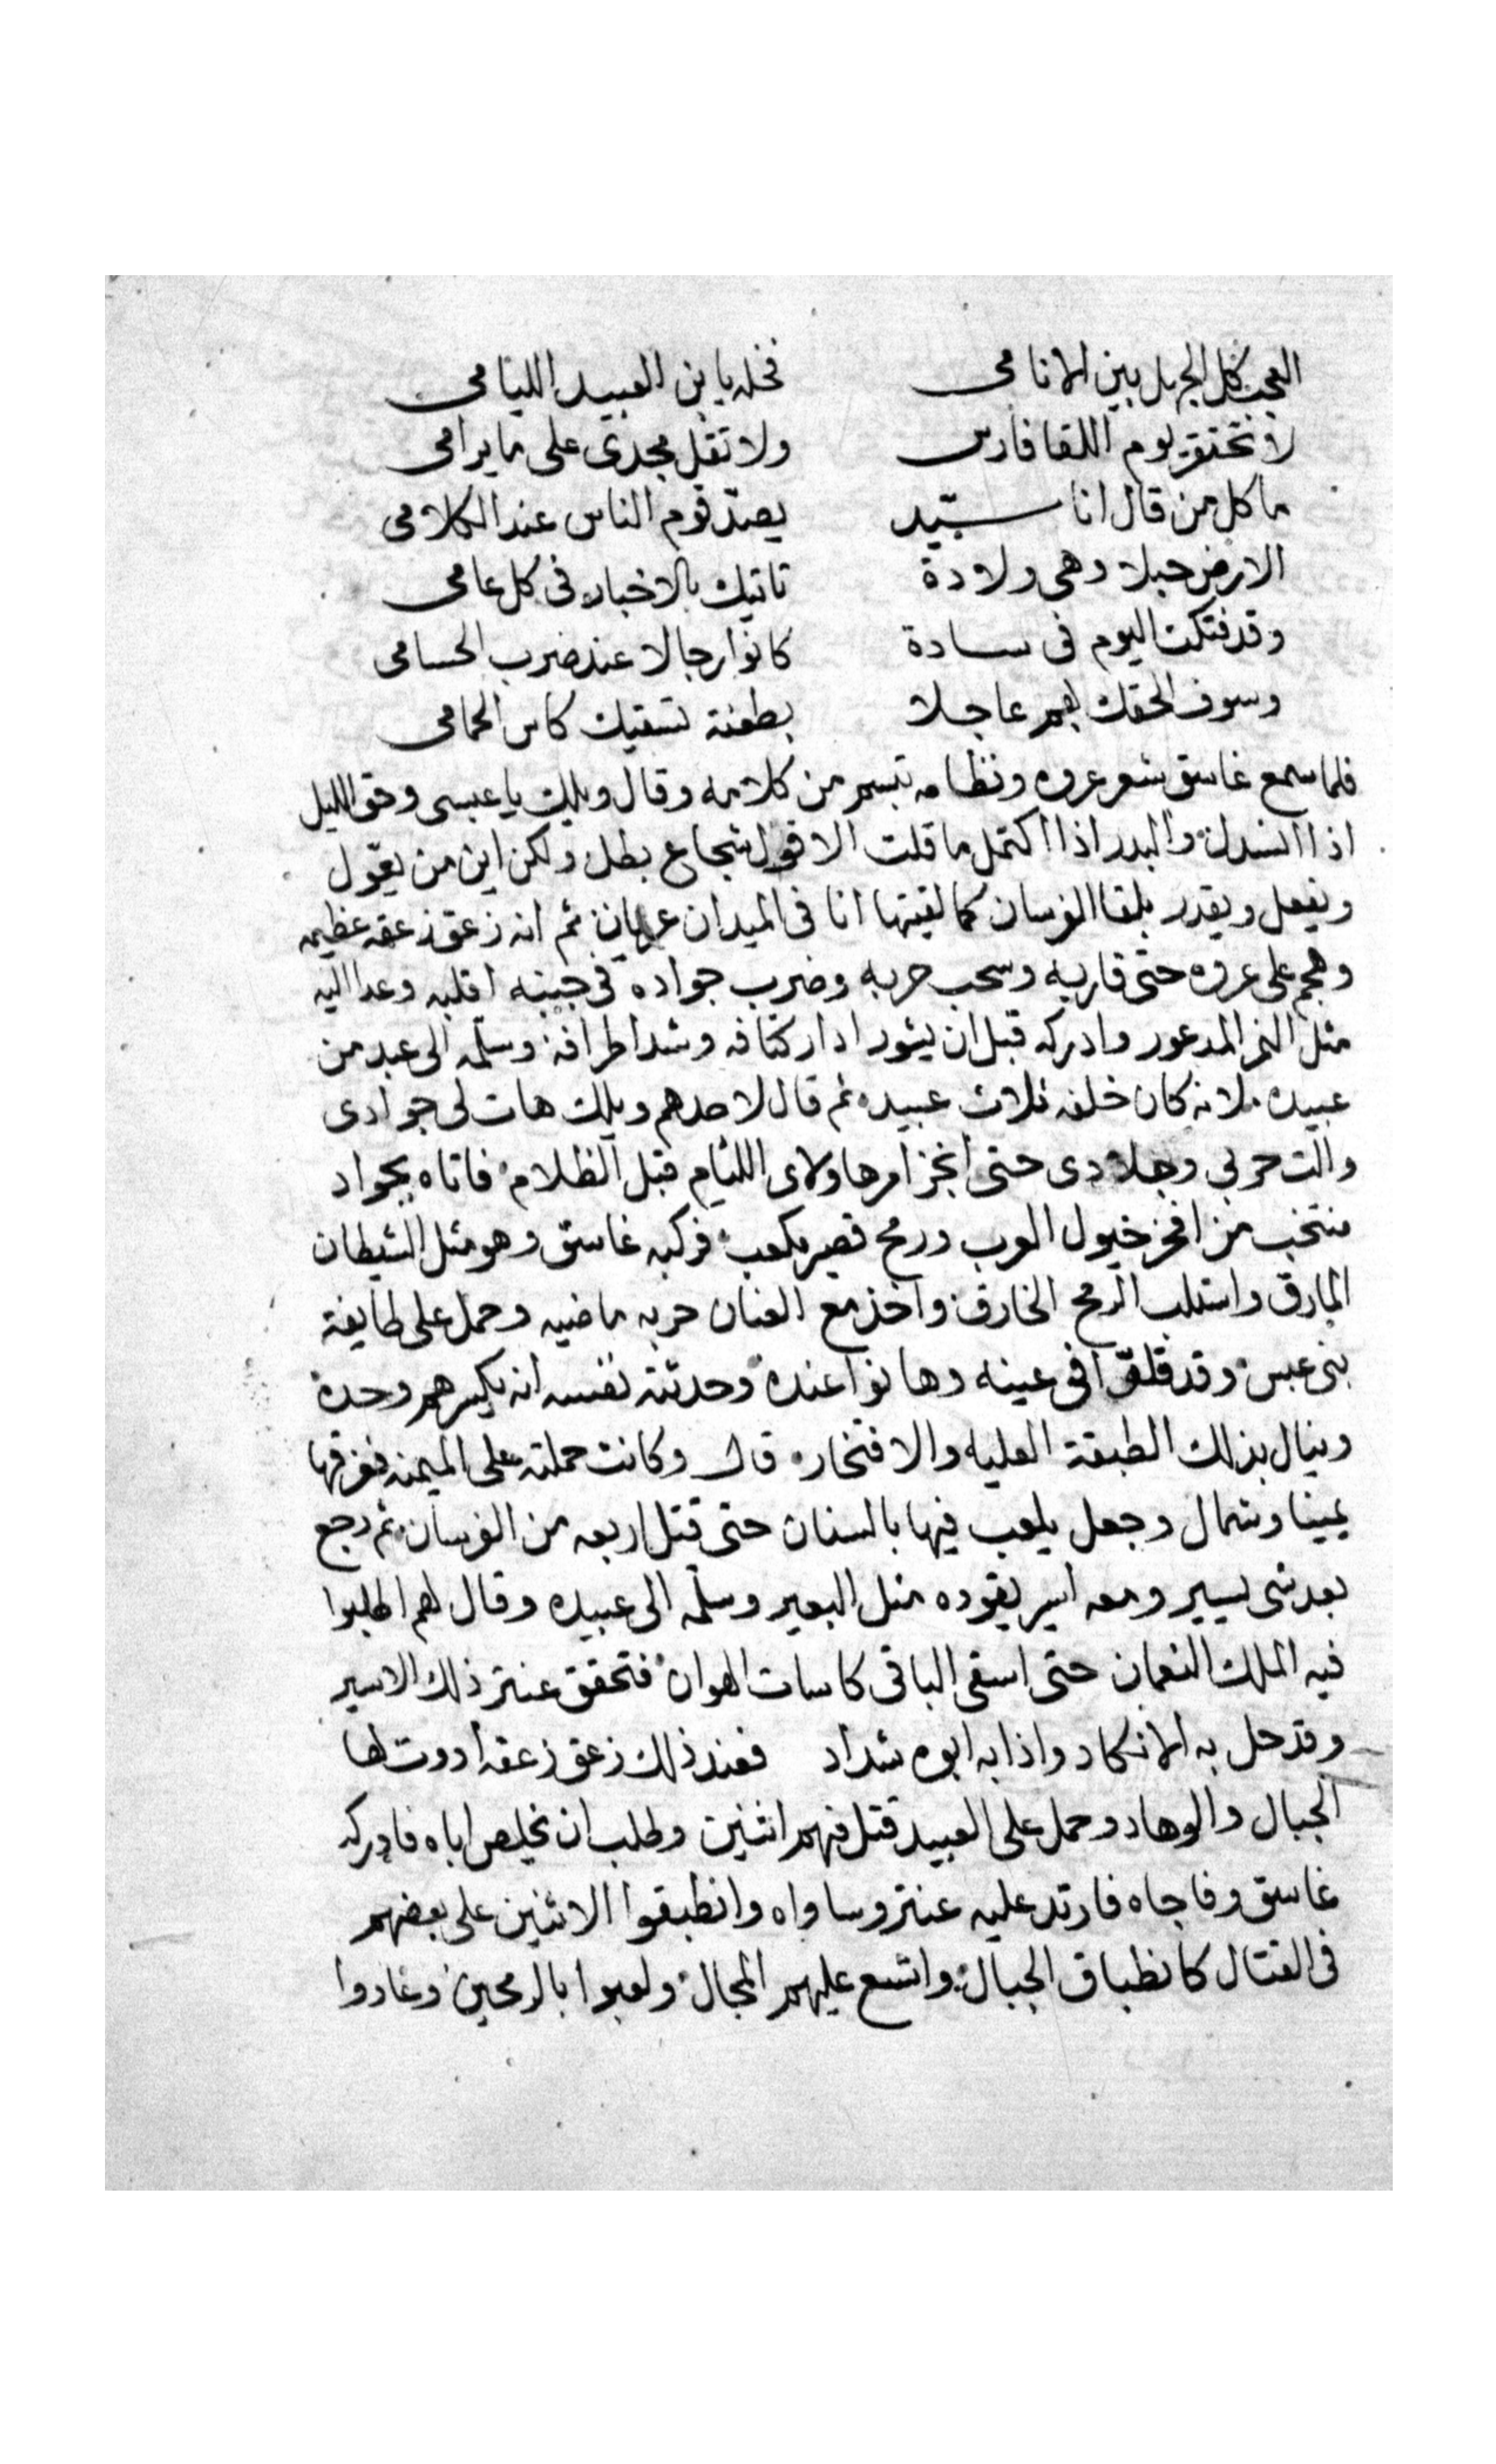 العجب كل الجهل بين الانامى فخله يا بن العبيد الليامى
لا تحتقر يوم اللقا فارس ولا تقل مجدى على ما يرامى
ما كل من قال انا سيّد يصدّقوه الناس عند الكلامى
الارض حبلا وهى ولادة تاتيك بالاخبار فى كل عامى
وقد فتكت اليوم فى سادة كانوا رجالا عند ضرب الحسامى
وسوف الحقك بهم عاجلا بطعنة تسقيك كاس الحمامى
فلما سمع غاسق شعر عروه ونظامه تبسم من كلامه وقال ويلك يا عبسى وحق الليل
اذا انسدل والبدر اذا اكتمل ما قلت الا قول شجاع بطل ولكن اين من يقول
ويفعل ويقدر يلقا الفرسان كما لقيتها انا فى الميدان عريان ثم انه زعق زعقه عظيمه
وهجم على عروه حتى قاربه وسحب حربه وضرب جواده فى جبينه اقلبه وعدا اليه
مثل النمر المدعور وادركه قبل ان يثور ادار كتافه وشد اطرافه وسلمه الى عبد من
عبيده لانه كان خلفه ثلاث عبيد ثم قال لاحدهم ويلك هات لى جوادى
والت حربى وجلادى حتى انجز امر هاولاى الليام قبل الظلام فاتاه بجواد
منتخب من افخر خيول العرب ورمح قصير مكعب فركبه غاسق وهو مثل الشيطان
المارق واستلب الرمح الخارق واخذ مع العنان حربه ماضيه وحمل على طايفة
بنى عبس وقد قلّوا فى عينه وهانوا عنده وحدثته نفسه انه يكسرهم وحده
وينال بذلك الطبقة العليه والافتخار قال وكانت حملته على الميمنه ففرقها
يمينا وشمال وجعل يلعب فيها بالسنان حتى قتل اربعه من الفرسان ثم رجع
بعد شى يسير ومعه اسير يقوده مثل البعير وسلمه الى عبيده وقال لهم اطلبوا
فيه الملك النعمان حتى اسقى الباقى كاسات الهوان فتحقق عنتر ذلك الاسير
وقد حل به الانكاد واذا به ابوه شداد فعند ذلك زعق زعقه ادوت لها
الجبال والوهاد وحمل على العبيد قتل منهم اثنين وطلب ان يخلص اباه فادركه
غاسق وفاجاه فارتد عليه عنتر وساواه وانطبقوا الاثنين على بعضهم
فى القتال كانطباق الجبال واتسع عليهم المجال ولعبوا بالرمحين وغادوا